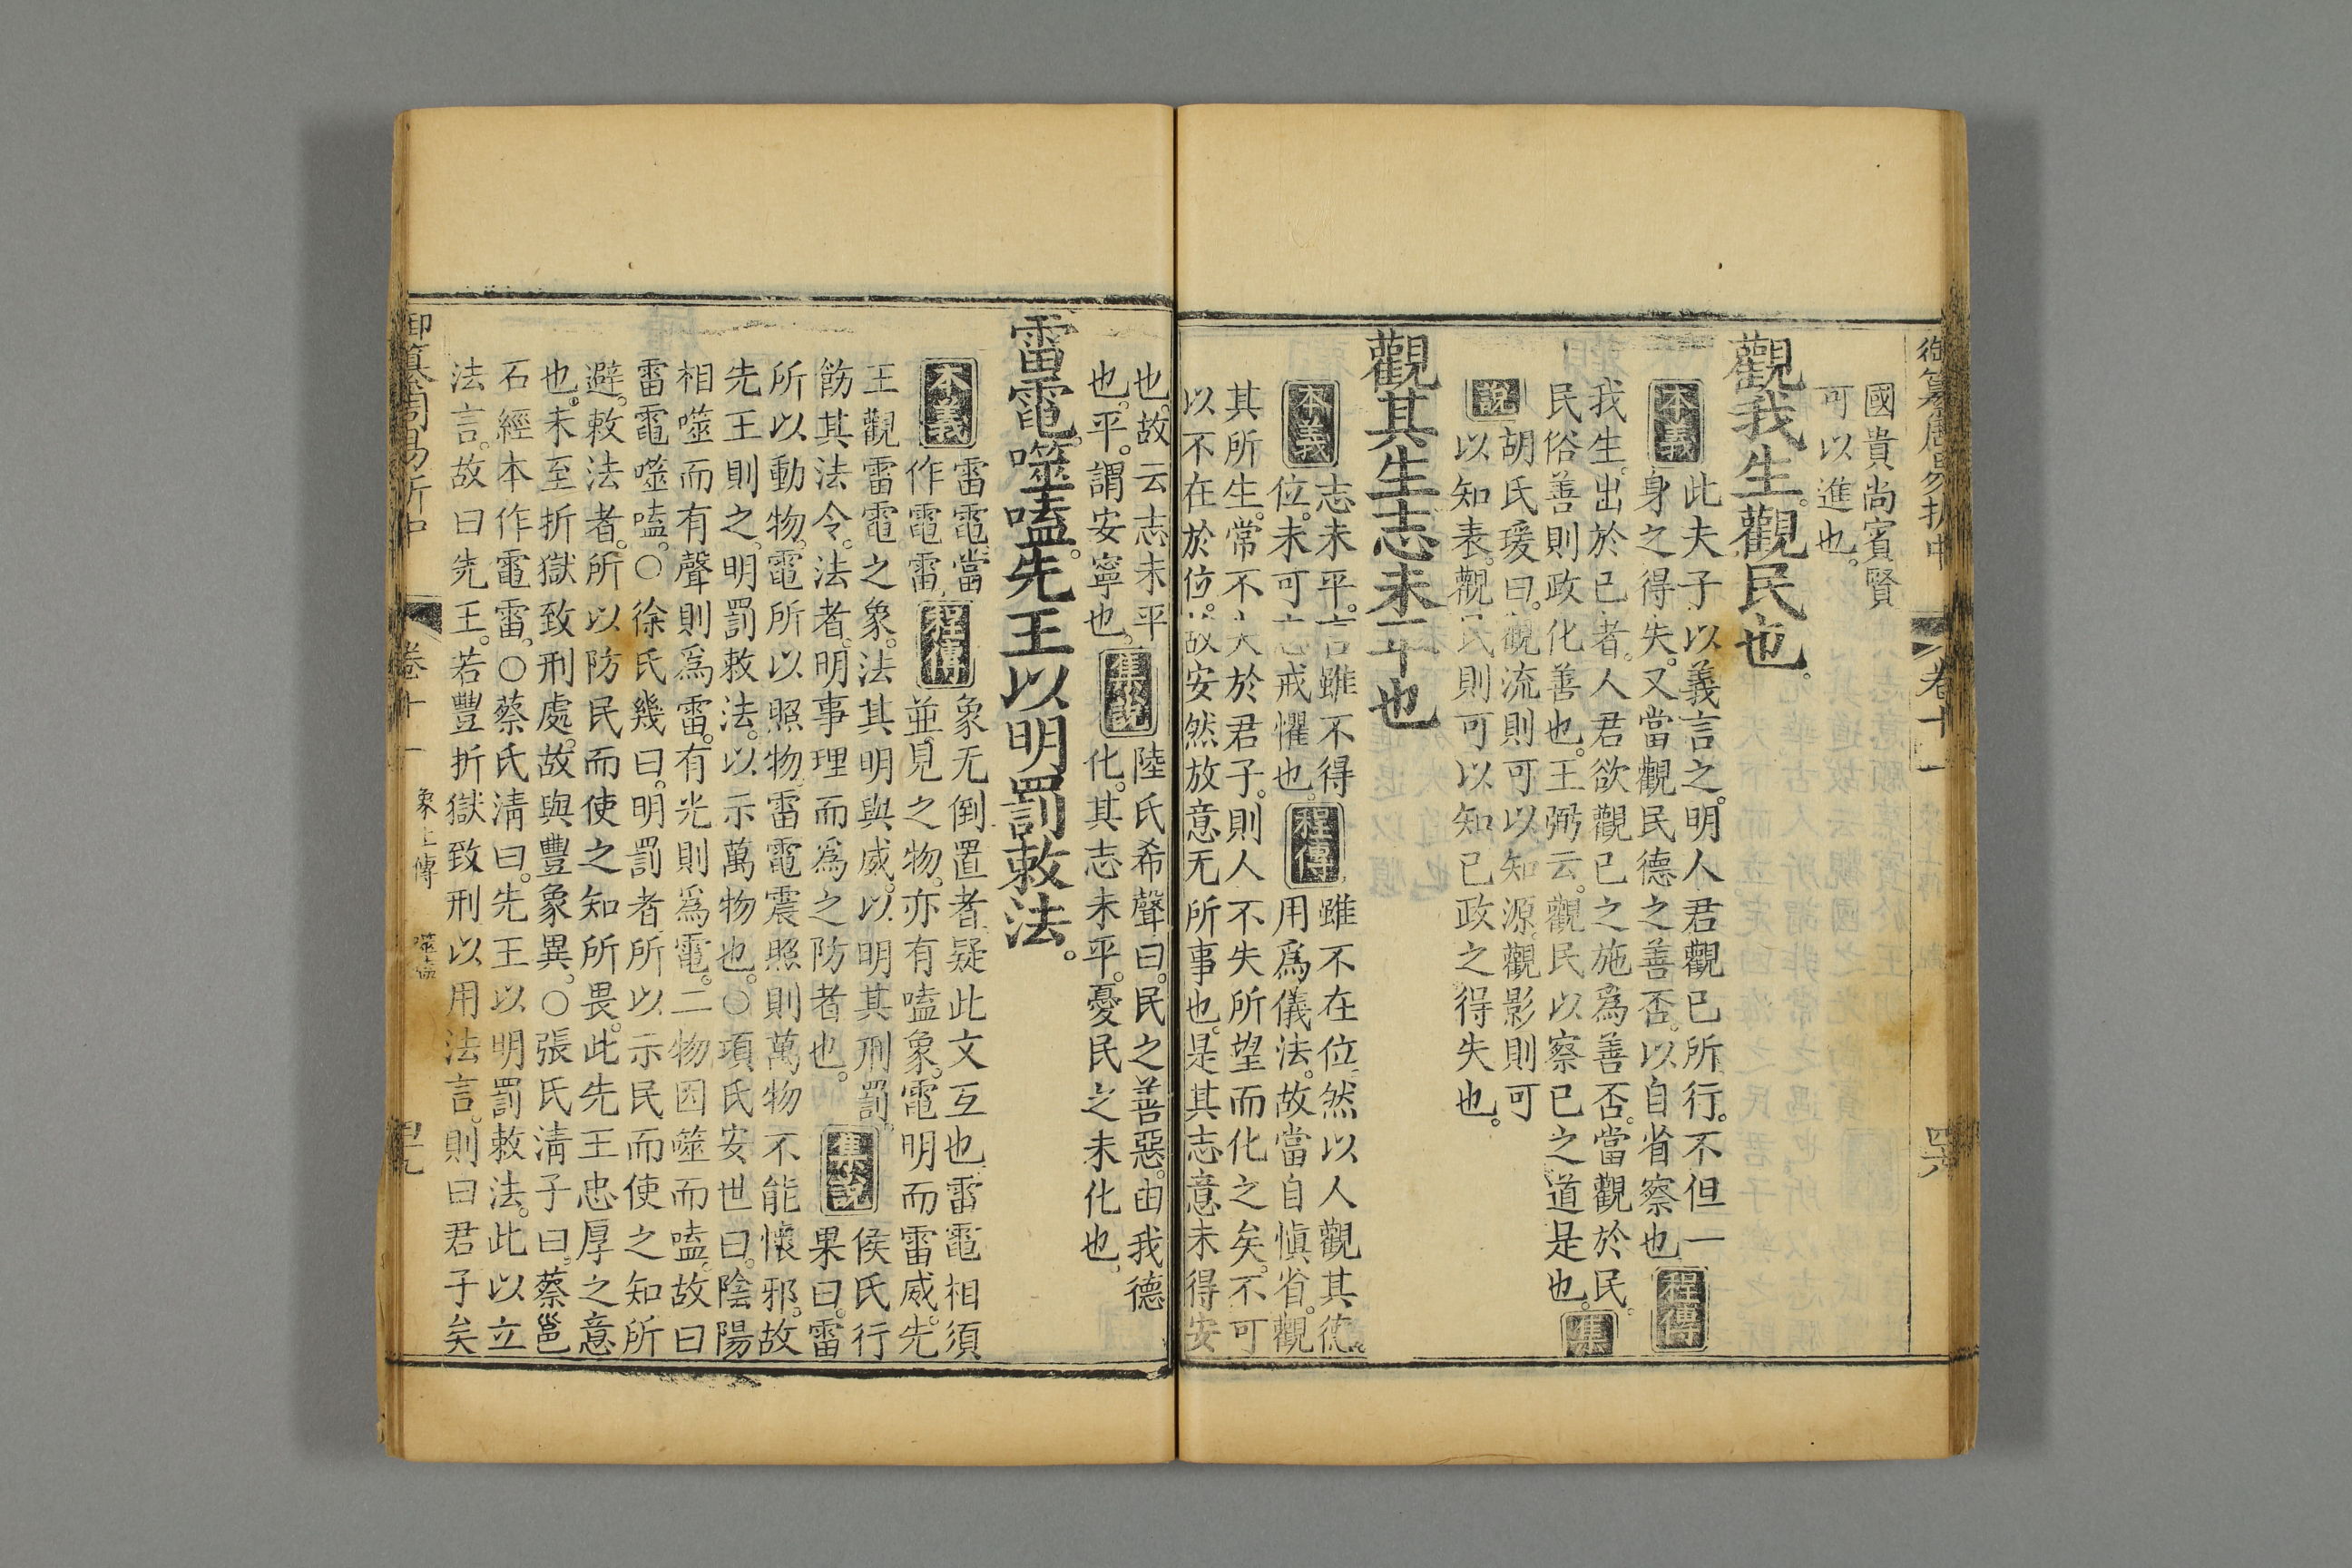 御纂周易折中 卷十一 四六
國貴尚賓賢
可以進也。
觀我生。觀民也。
本義 此夫子以義言之。明人君觀已所行。不但一
身之得失。又當觀民德之善否。以自省察也 程傳
我生。出於已者。人君欲觀已之施爲善否。當觀於民。
民俗善則政化善也。王弼云。觀民以察已之道是也。 集
說 胡氏瑗曰。觀流則可以知源。觀影則可
以知表。觀民則可以知已政之得失也。
觀其生志未平也
本義 志未平。言雖不得
位。未可忘戒懼也。 程傳 雖不在位。然以人觀其德。
用爲儀法。故當自愼省。觀
其所生。常不失於君子。則人不失所望而化之矣。不可
以不在於位。故安然放意无所事也。是其志意未得安
也。故云志未平
也。平。謂安寧也。 集說 陸氏希聲曰。民之善惡。由我德
化。其志未平。憂民之未化也。
雷電。噬嗑。先王以明罰敕法。
本義 雷電。當
作電雷。 程傳 象无倒置者。疑此文互也。雷電。相須
並見之物。亦有嗑象。電明而雷威。先
王觀雷電之象。法其明與威。以明其刑罰。
飭其法令。法者。明事理而爲之防者也。 集說 侯氏行
果曰。雷
所以動物。電所以照物。雷電震照則萬物不能懷邪。故
先王則之。明罰敕法。以示萬物也。○項氏安世曰。陰陽
相噬而有聲則爲雷。有光則爲電。二物因噬而嗑。故曰
雷電噬嗑。○徐氏幾曰。明罰者。所以示民而使之知所
避。敕法者。所以防民而使之知所畏。此先王忠厚之意
也。未至折獄致刑處。故與豐象異。○張氏淸子曰。蔡邕
石經本作電雷。○蔡氏淸曰。先王以明罰敕法。此以立
法言。故曰先王。若豐折獄致刑。以用法言。則曰君子矣
御纂周易折中 卷十一 象上傳 噬嗑 四七